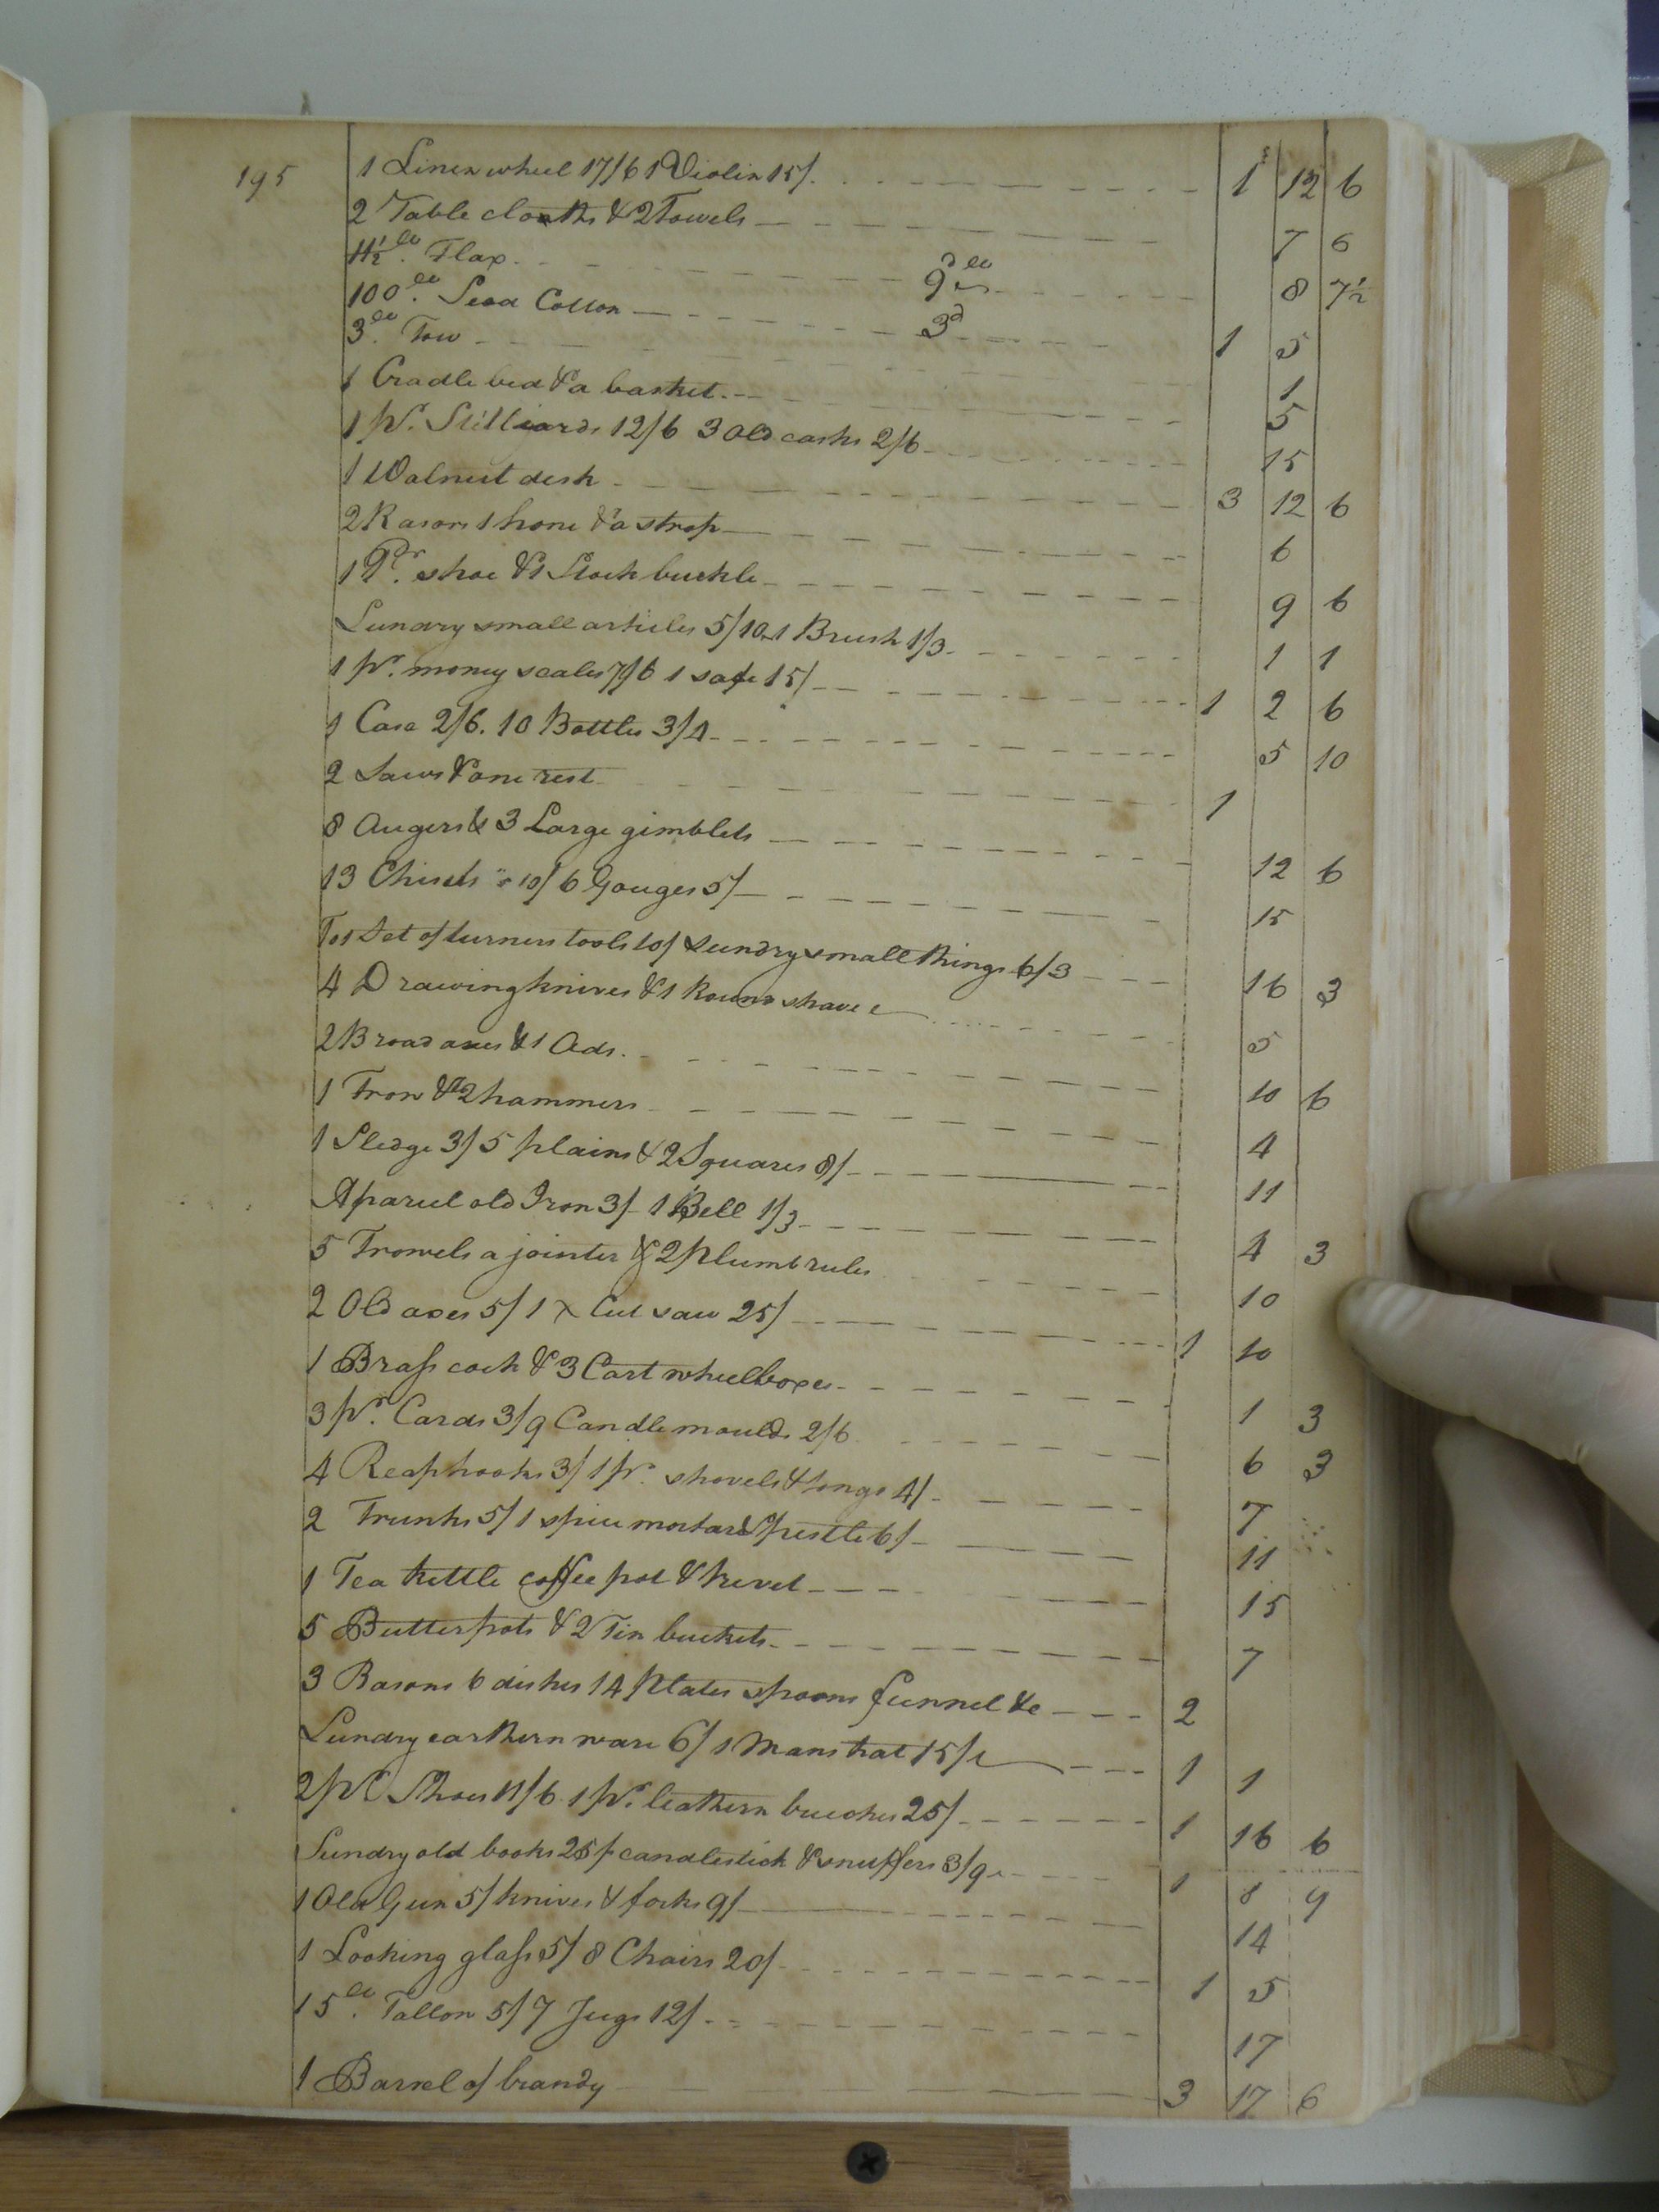 195
1 Linen wheel 17/6 1 Violin 15/. 1 12 6
2 Table cloaths & 2 Towels 7 6
11½ lb. Flax 9d lb 8 7½
100 lb. Seed Cotton 3d 1 5
3 lb. Tow 1
1 Cradle bed & a basket 5
1 pr. Stilliards 12/6 3 old casks 2/6 15
1 Walnut desk 3 12 6
2 Rasors 1 hone & a strop 6
1 Pr. shoe & 1 Stock buckle 9 6
Sundry small articles 5/10 1 Brush 1/3 1 1
1 pr. money scales 7/6 1 safe 15/ 1 2 6
1 Case 2/6. 10 Bottles 3/4 5 10
2 Saws & one rest 1
8 Augers & 3 Large gimblets 12 6
13 Chisels 10/ 6 Gouges 5/ 15
To 1 Set of turners tools 10/ sundry small things 6/3 16 3
4 Drawing knives & 1 Round shave 5
2 Broad axes & 1 Ads. 10 6
1 Frow & 2 hammers 4
1 Sledge 3/ 5 plains & 2 Squares 8/ 11
A parcel old Iron 3/ 1 Bell 1/3 4 3
5 Trowels a jointer & 2 plumb rules 10
2 Old axes 5/ 1 x Cut saw 25/ 1 10
1 Brass cock & 3 Cart wheel boxes 1 3
3 pr. Cards 3/9 Candle moulds 2/6 6 3
4 Reaphooks 3/ 1 pr. shovels & tongs 4/ 7
2 Trunks 5/ 1 spice mortar & pestle 6/ 11
1 Tea kettle coffee pot & trevet 15
5 Butter pots & 2 Tin buckets 7
3 Basons 6 dishes 14 plates spoons funnel &c 2
Sundry earthern ware 6/ 1 Mans hat 15/ 1 1
2 pr Shoes 11/6 1 pr. leathern breeches 25/ 1 16 6
Sundry old books 25/ candlestick & snuffers 3/9 1 8 9
1 Old Gun 5/ knives & forks 9/ 14
1 Looking glass 5/ 8 Chairs 20/ 1 5
15 lb. Tallow 5/ 7 Jugs 12/. 17
1 Barrel of brandy 3 17 6